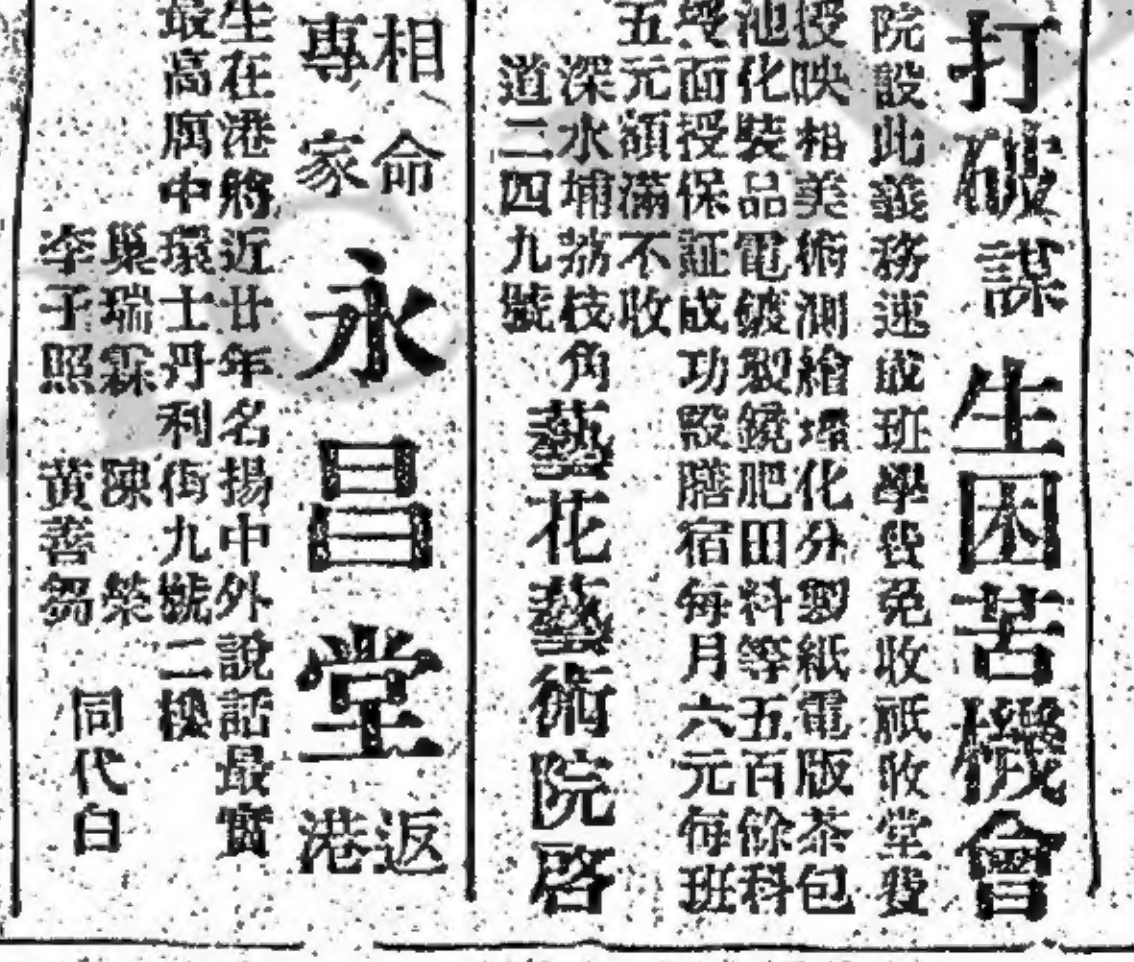 打破謀生困苦機會
院設此義務速成班學費免收祇收堂費
授映相美術測繪壜化分製紙電版茶包
池化裝品電鍍製鏡肥田料等五百餘科
面授保証成功設膳宿每月六元每班
五元額滿不收
深水埔荔枝角
道二四九號
藝花藝術院啓
相命
專家
永昌堂
返
港
生在港將近廿年名揚中外說話最實
最高屬中環士丹利街九號二樓
巢瑞霖 陳榮
李子照 黃善芻
同代白